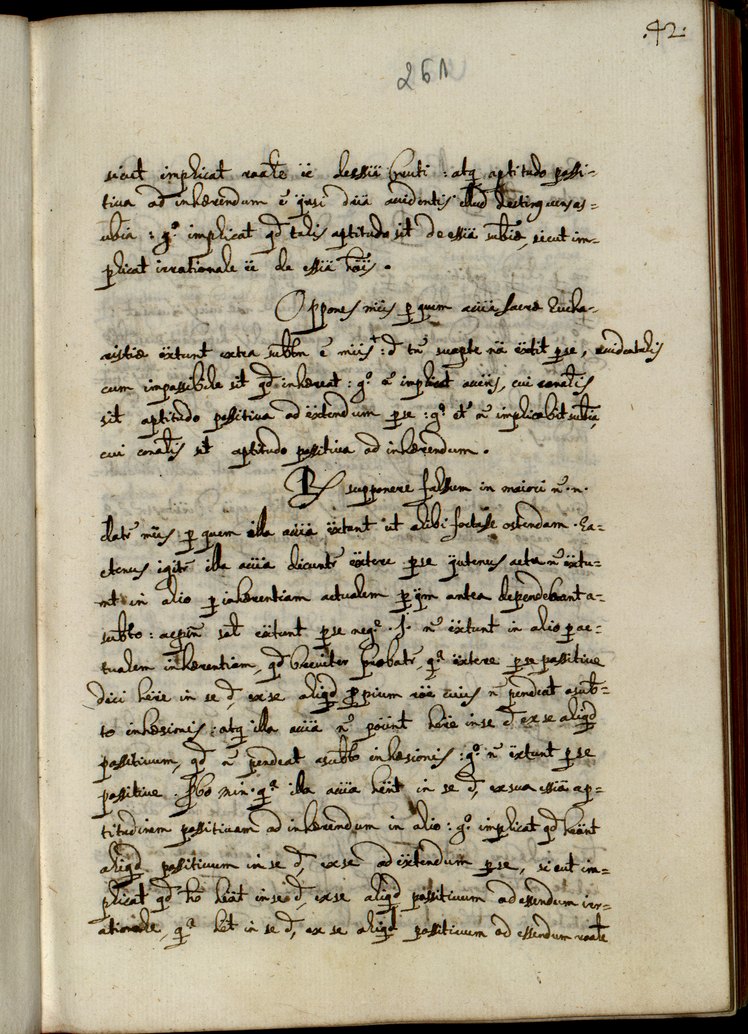 .42.
261
sicut implicat rãale ëe de essiã bruti : atq aptitudo possi-
tiva ad inhærendum ẽ quasi dr̃ia accidentis illud distinguens a s-
ubĩa : gº implicat qd talis aptitudo sit de essiã subĩæ, sicut im-
plicat irrationale ëe de essiã hõis .
Oppones miũs p quem acciã sacræ Eucha-
ristiæ ëxtunt extra subtm ẽ miũs : d tñ suapte nã ëxtit p se,
cum impossibile sit qd inhæreat : gº ñ implicat accñs, cui conalis
sit aptitudo possitiva ad ëxtendum p se : gº et ñ implicabit subĩa,
cui conalis sit aptitudo possitiva ad inhærendum .
R supponere falsum in maiori ñ . n .
datr miũs p quem illa acciã ëxtant ut alibi fortasse ostendam . Ea-
ctenus igitr illa acciã dicuntr ëxtere p se quatenus actu ñ ëxtu-
nt in alio p inhærentiam actualem p qm antea dependebant a-
subto : ac pñ sal ëxtunt p se negê .f. ñ ëxtunt in alio p ac-
tualem inhærentiam, qd breviter probatr, qª ëxtere p se possitive
dici hẽre in se d, ex se aliqd proprium rõe cuius ñ pendeat a sub-
to inhæsionis : atq illa acciã ñ possunt hẽre in se d ex se aliqd
possitivum, qd ñ pendeat a subto inhæsionis : gº ñ ëxtunt p se
possitive . Pbo min . qª illa acciã hẽnt in se d, ex sua essiã ap-
titudinem possitivam ad inhærendum in alio : gº implicat qd hẽant
aliqd possitivum in se d, ex se ad ëxtendum p se, sicut im-
plicat qd hõ hẽat in se d, ex se aliqd possitivum ad essendum irr-
ationale, qª hẽt in se d, ex se aliqd possitivum ad essendum rãale